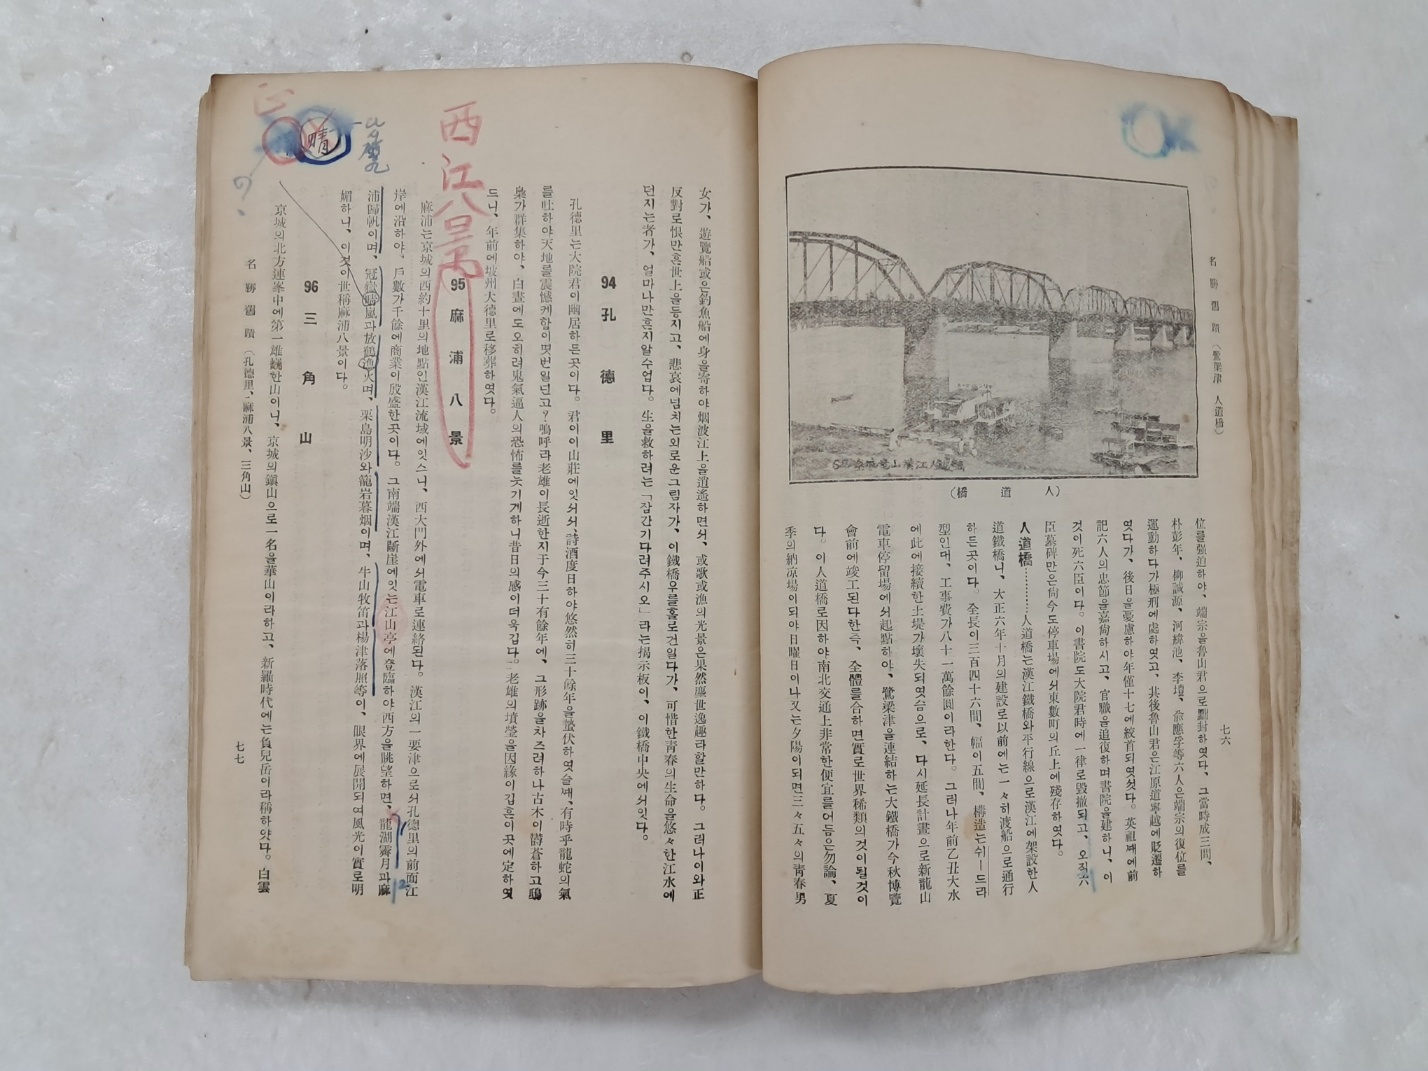 名勝舊蹟 (鷺梁津 人道橋)
七六
(人道橋)
位를强迫하야、端宗을魯山君으로劃封하엿다、그當時成三問、
朴彭年、柳誠源、河緯池、李塏、兪應孚等六人은端宗의復位를
運動하다가極刑에處하엿고、其後魯山君은江原道寧越에貶遷하
엿다가、後日을憂慮하야年僅十七에絞首되엿섯다。英祖째에前
記六人의忠節을嘉尙하시고、官職을追復하며書院을建하니、이
것이死六臣이다。이書院도大院君時에一律로毁撤되고、오즉六
臣墓碑만은尙今도停車場에서東數町의丘上에殘存하엿다。
人道橋…………人道橋는漢江鐵橋와平行線으로漢江에架設한人
道鐵橋니、大正六年十月의建設로以前에는一々히渡船으로通行
하든곳이다。全長이三百四十六間、幅이五間、構造는쉬ー드라
型인데、工事費가八十一萬餘圓이라한다。그러나年前乙丑大水
에此에接續한土堤가壞失되엿슴으로、다시延長計畫으로新龍山
電車停留場에서起點하야、鷺梁津을連結하는大鐵橋가今秋博覽
會前에竣工된다한즉、全體를合하면實로世界稀類의것이될것이
다。이人道橋로因하야南北交通上非常한便宜를어듬은勿論、夏
季의納凉場이되야日曜日이나又는夕陽이되면三々五々의青春男
女가、遊覽船或은釣魚船에身을寄하야烟波江上을逍遙하면서、或歌或漁의光景은果然塵世逸趣라할만하다。그러나이와正
反對로恨만흔世上을등지고、悲哀에넘치는외로운그림자가、이鐵橋우를홀로건일다가、可惜한靑春의生命을悠々한江水에
던지는者가、얼마나만흔지알수업다。生을救하려는「잠간기다려주시오」라는揭示板이、이鐵橋中央에서잇다。
94 孔德里
孔德里는大院君이幽居하든곳이다。君이이山莊에잇서서、詩酒度日하야悠然히三十餘年을蟄伏하엿슬째、有時乎龍蛇의氣
를吐하야天地를震憾케함이몃번일넌고?嗚呼라老雄이長逝한지于今三十有餘年에、그形跡을차즈려하나古木이欝蒼하고鵑
梟가群集하야、白晝에도오히려鬼氣逼人의恐怖를늣기게하니昔日의感이더욱깁다。老雄의墳塋을因緣이깁흔이곳에定하엿
드니、年前에坡州大德里로移葬하엿다。
西江八景
95 麻浦八景
麻浦는京城의西約十里의地點인漢江流域에잇스니、西大門外에서電車로連絡된다。漢江의一要津으로서孔德里의前面江
岸에沿하야、戶數가千餘에商業이殷盛한곳이다。그南端漢江斷崖에잇는江山亭에登臨하야西方을眺望하면、龍湖霽月과麻
浦歸帆이며、冠嶽晴嵐과放鶴漁火며、栗島明沙와龍岩暮烟이며、牛山牧笛과楊津落照等이、眼界에展開되여風光이實로明
媚하니、이것이世稱麻浦八景이다。
96 三角山
京城의北方連峯中에第一雄巍한山이니、京城의鎭山으로一名을華山이라하고、新羅時代에는負兒岳이라稱하얏다。白雲
名勝舊蹟 (孔德里、麻浦八景、三角山)
七七
晴
?